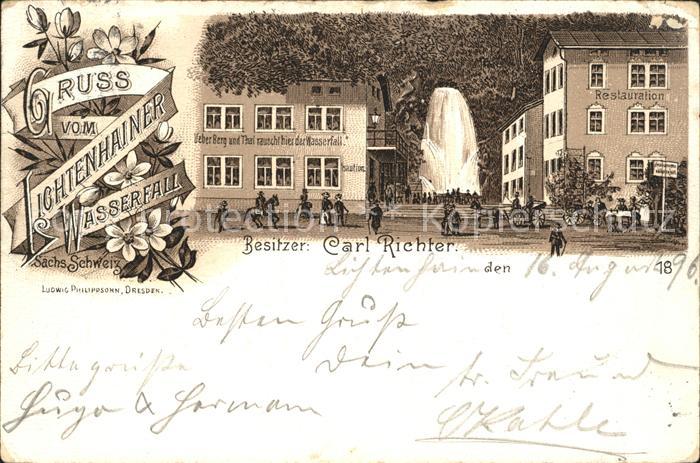 GRUSS
VOM
LICHTENHAINER
WASSERFALL
Sächs. Schweiz
LUDWIG PHILIPPSOHN, DRESDEN.
Ueber Berg und Thal rauscht hier der Wasserfall."
Restauration
Besitzer: Carl Richter.
Lichtenhain den 16. August 1896
Besten Gruß
Bitte grüße Dein tr. Freund
Hugo & Hermann CKahle